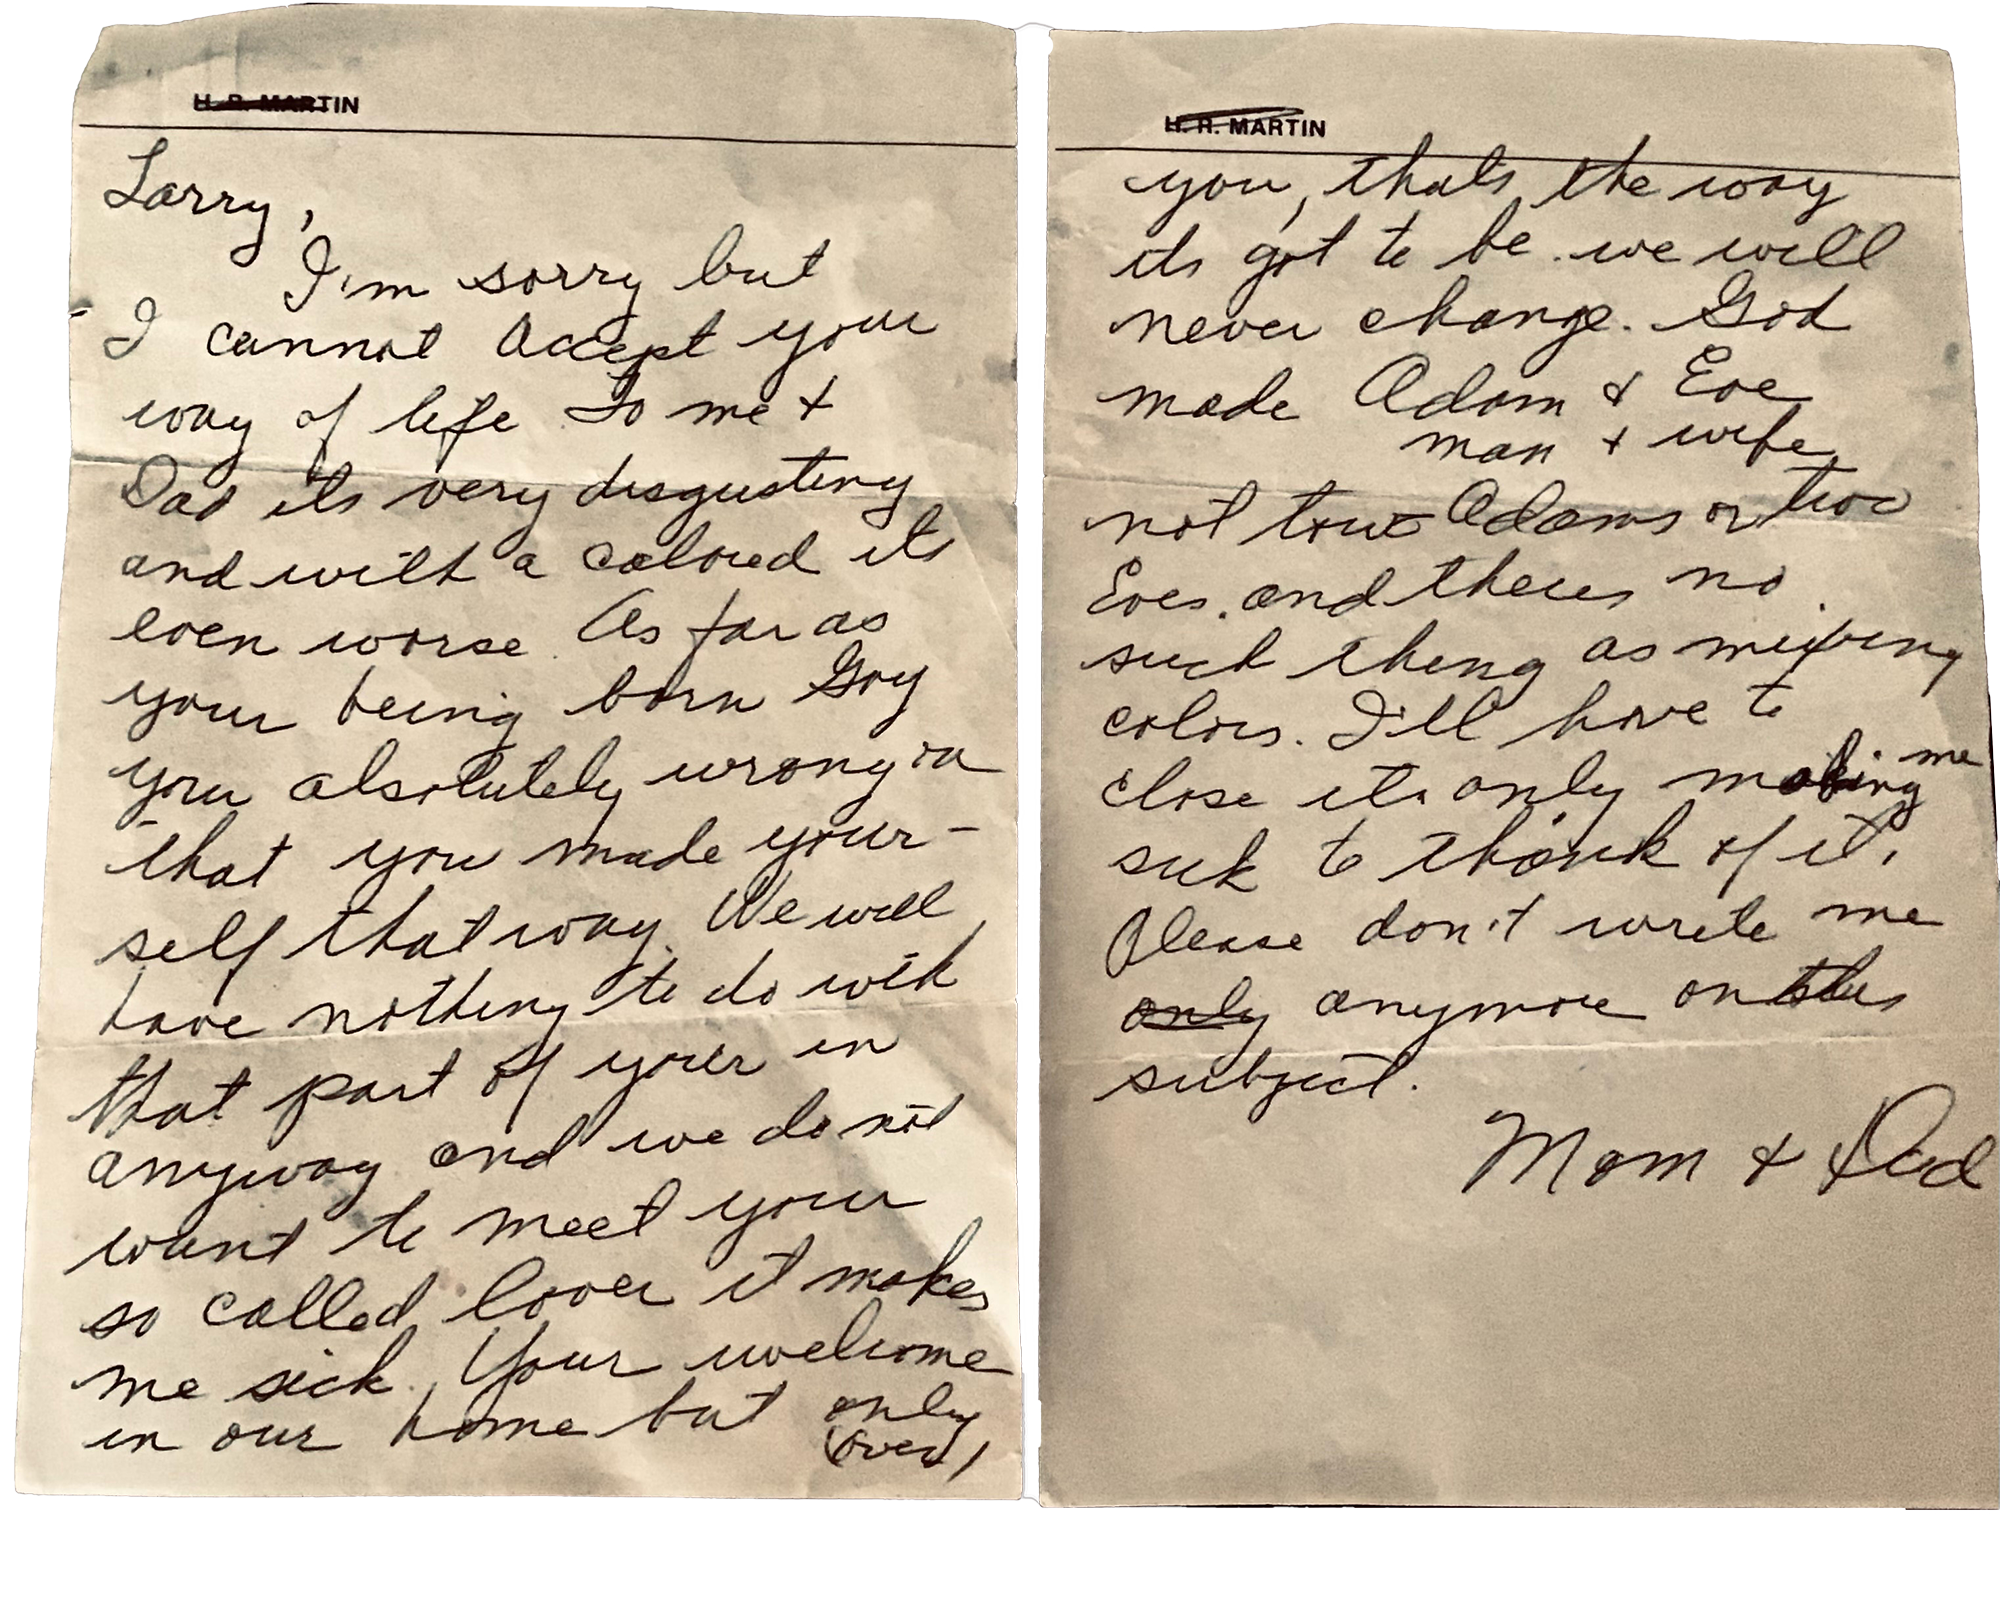 H. R. MARTIN
Larry,
I'm sorry but
I cannot accept your
way of life To me +
Dad its very disgusting
and with a colored its
even worse. As far as
your being born Gay
you absolutely wrong in
that you made your-
self that way. We will
have nothing to do with
that part of your in
anyway and we do not
want to meet your
so called lover it makes
me sick. Your welcome
in our home but only
(over)
H. R. MARTIN
you, thats the way
its got to be. we will
never change. God
made Adam & Eve
man + wife
not two Adams or two
Eves. and theres no
such thing as mixing
colors. I'll have to
close its only making me
sick to think of it.
Please don't write me
only anymore on this
subject.
Mom & Dad